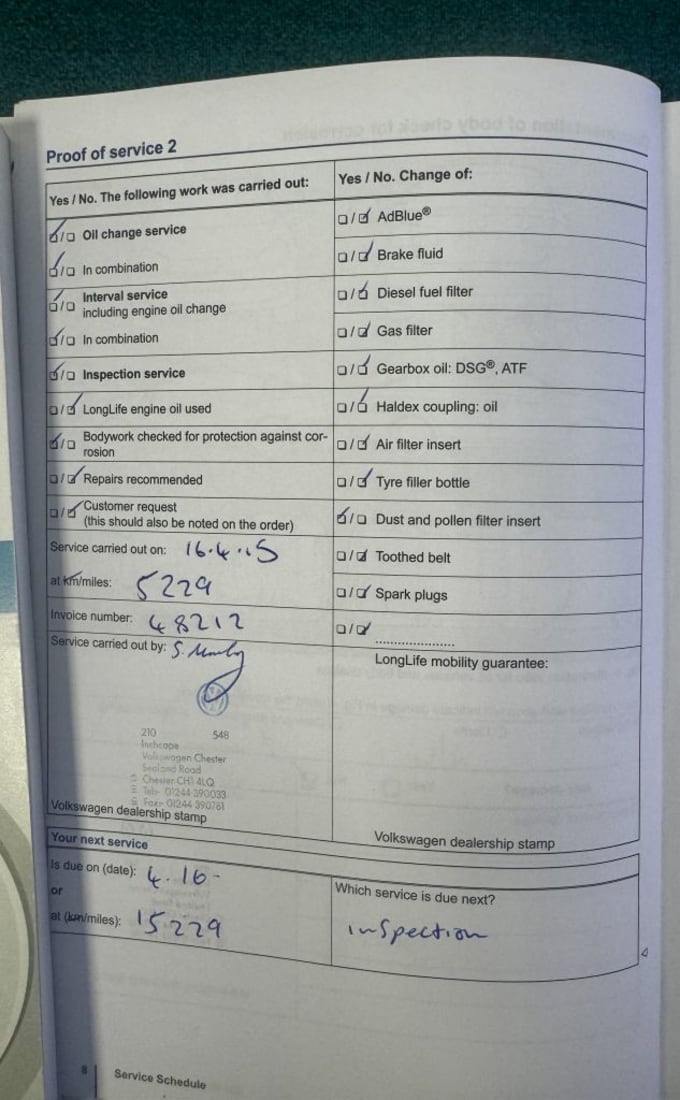 Proof of service 2
Yes / No. The following work was carried out:
☑/☐ Oil change service
☑/☐ In combination
☑/☐ Interval service
including engine oil change
☑/☐ In combination
☑/☐ Inspection service
☐/☑ LongLife engine oil used
☑/☐ Bodywork checked for protection against cor-
rosion
☐/☑ Repairs recommended
☐/☑ Customer request
(this should also be noted on the order)
Service carried out on: 16.4.15
at km/miles: 5229
Invoice number: 48212
Service carried out by: S.
210 548
Inchcape
Volkswagen Chester
Sealand Road
Chester CH1 4LQ
Tel:- 01244 390033
Fax:- 01244 390761
Volkswagen dealership stamp
Yes / No. Change of:
☐/☑ AdBlue®
☐/☑ Brake fluid
☐/☑ Diesel fuel filter
☐/☑ Gas filter
☐/☑ Gearbox oil: DSG®, ATF
☐/☑ Haldex coupling: oil
☐/☑ Air filter insert
☐/☑ Tyre filler bottle
☑/☐ Dust and pollen filter insert
☐/☑ Toothed belt
☐/☑ Spark plugs
☐/☑ ....................
LongLife mobility guarantee:
Volkswagen dealership stamp
Your next service
Is due on (date): 4.16-
or
at (km/miles): 15229
Which service is due next?
inspection
8 Service Schedule